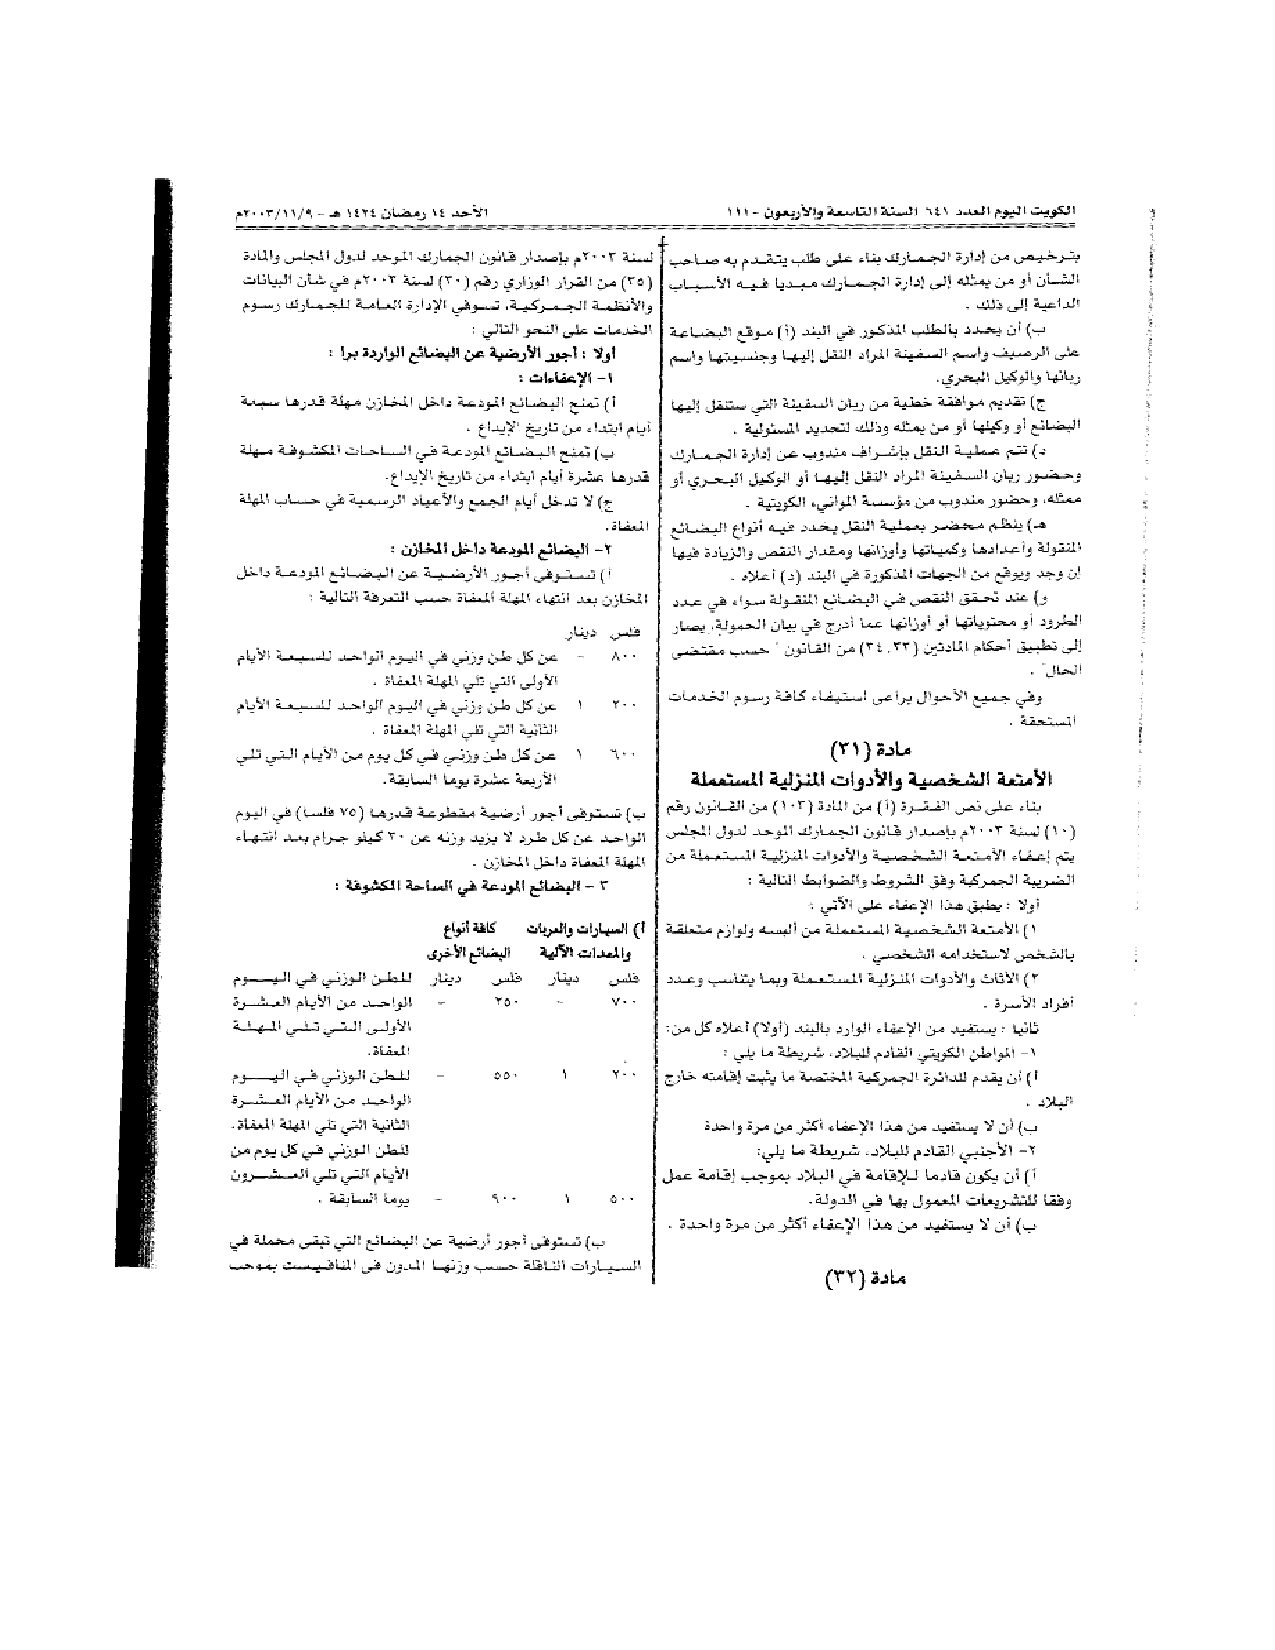 الكويت اليوم العدد ٦٤١ السنة التاسعة والأربعون - ١١١
الأحد ١٤ رمضان ١٤٢٤ هـ - ٢٠٠٣/١١/٩م
بترخيص من إدارة الجمارك بناء على طلب يتقدم به صاحب
الشأن أو من يمثله إلى إدارة الجمارك مبديا فيه الأسباب
الداعية إلى ذلك .
ب) أن يحدد بالطلب المذكور في البند (أ) موقع البضاعة
على الرصيف واسم السفينة المراد النقل إليها وجنسيتها واسم
ربانها والوكيل البحري.
ج) تقديم موافقة خطية من ربان السفينة التي ستنقل إليها
البضائع أو وكيلها أو من يمثله وذلك لتحديد المسئولية .
د) تتم عملية النقل بإشراف مندوب عن إدارة الجمارك
وحضور ربان السفينة المراد النقل إليها أو الوكيل البحري أو
ممثله، وحضور مندوب من مؤسسة المواني، الكويتية .
هـ) ينظم محضر بعملية النقل يحدد فيه أنواع البضائع
المنقولة وأعدادها وكمياتها وأوزانها ومقدار النقص والزيادة فيها
إن وجد ويوقع من الجهات المذكورة في البند (د) أعلاه .
و) عند تحقق النقص في البضائع المنقولة سواء في عدد
الطرود أو محتوياتها أو أوزانها عما أدرج في بيان الحمولة، يصار
إلى تطبيق أحكام المادتين (٣٣، ٣٤) من القانون " حسب مقتضى
الحال" .
وفي جميع الأحوال يراعى استيفاء كافة رسوم الخدمات
المستحقة .
مادة (٣١)
الأمتعة الشخصية والأدوات المنزلية المستعملة
بناء على نص الفقرة (أ) من المادة (١٠٣) من القانون رقم
(١٠) لسنة ٢٠٠٣م بإصدار قانون الجمارك الموحد لدول المجلس
يتم إعفاء الأمتعة الشخصية والأدوات المنزلية المستعملة من
الضريبة الجمركية وفق الشروط والضوابط التالية :
أولا : يطبق هذا الإعفاء على الآتي :
١) الأمتعة الشخصية المستعملة من ألبسه ولوازم متعلقة
بالشخص لاستخدامه الشخصي .
٢) الأثاث والأدوات المنزلية المستعملة وبما يتناسب وعدد
أفراد الأسرة .
ثانيا : يستفيد من الإعفاء الوارد بالبند (أولا) أعلاه كل من:
١- المواطن الكويتي القادم للبلاد، شريطة ما يلي :
أ) أن يقدم للدائرة الجمركية المختصة ما يثبت إقامته خارج
البلاد .
ب) أن لا يستفيد من هذا الإعفاء أكثر من مرة واحدة
٢- الأجنبي القادم للبلاد، شريطة ما يلي:
أ) أن يكون قادما للإقامة في البلاد بموجب إقامة عمل
وفقا للتشريعات المعمول بها في الدولة.
ب) أن لا يستفيد من هذا الإعفاء أكثر من مرة واحدة .
مادة (٣٢)
لسنة ٢٠٠٣م بإصدار قانون الجمارك الموحد لدول المجلس والمادة
(٣٥) من القرار الوزاري رقم (٣٠) لسنة ٢٠٠٣م في شأن البيانات
والأنظمة الجمركية، تسوفي الإدارة العامة للجمارك رسوم
الخدمات على النحو التالي :
أولا : أجور الأرضية عن البضائع الواردة برا :
١- الإعفاءات :
أ) تمنح البضائع المودعة داخل المخازن مهلة قدرها سبعة
أيام ابتداء من تاريخ الإيداع .
ب) تمنح البضائع المودعة في الساحات المكشوفة مهلة
قدرها عشرة أيام ابتداء من تاريخ الإيداع.
ج) لا تدخل أيام الجمع والأعياد الرسمية في حساب المهلة
المعفاة.
٢- البضائع المودعة داخل المخازن :
أ) تستوفى أجور الأرضية عن البضائع المودعة داخل
المخازن بعد انتهاء المهلة المعفاة حسب التعرفة التالية :
فلس دينار
٨٠٠ - عن كل طن وزني في اليوم الواحد للسبعة الأيام
الأولى التي تلي المهلة المعفاة .
٢٠٠ ١ عن كل طن وزني في اليوم الواحد للسبعة الأيام
الثانية التي تلي المهلة المعفاة .
٦٠٠ ١ عن كل طن وزني في كل يوم من الأيام التي تلي
الأربعة عشرة يوما السابقة.
ب) تستوفى أجور أرضية مقطوعة قدرها (٧٥ فلسا) في اليوم
الواحد عن كل طرد لا يزيد وزنه عن ٣٠ كيلو جرام بعد انتهاء
المهلة المعفاة داخل المخازن .
٣ - البضائع المودعة في الساحة المكشوفة :
أ) السيارات والعربات كافة أنواع
والمعدات الآلية البضائع الأخرى
فلس دينار فلس دينار للطن الوزني في اليوم
٧٠٠ - ٣٥٠ - الواحد من الأيام العشرة
الأولى التي تلي المهلة
المعفاة.
٢٠٠ ١ ٥٥٠ - للطن الوزني في اليوم
الواحد من الأيام العشرة
الثانية التي تلي المهلة المعفاة.
للطن الوزني في كل يوم من
الأيام التي تلي العشرون
٥٠٠ ١ ٩٠٠ - يوما السابقة .
ب) تستوفى أجور أرضية عن البضائع التي تبقى محملة في
السيارات الناقلة حسب وزنها المدون في المنافيست بموجب